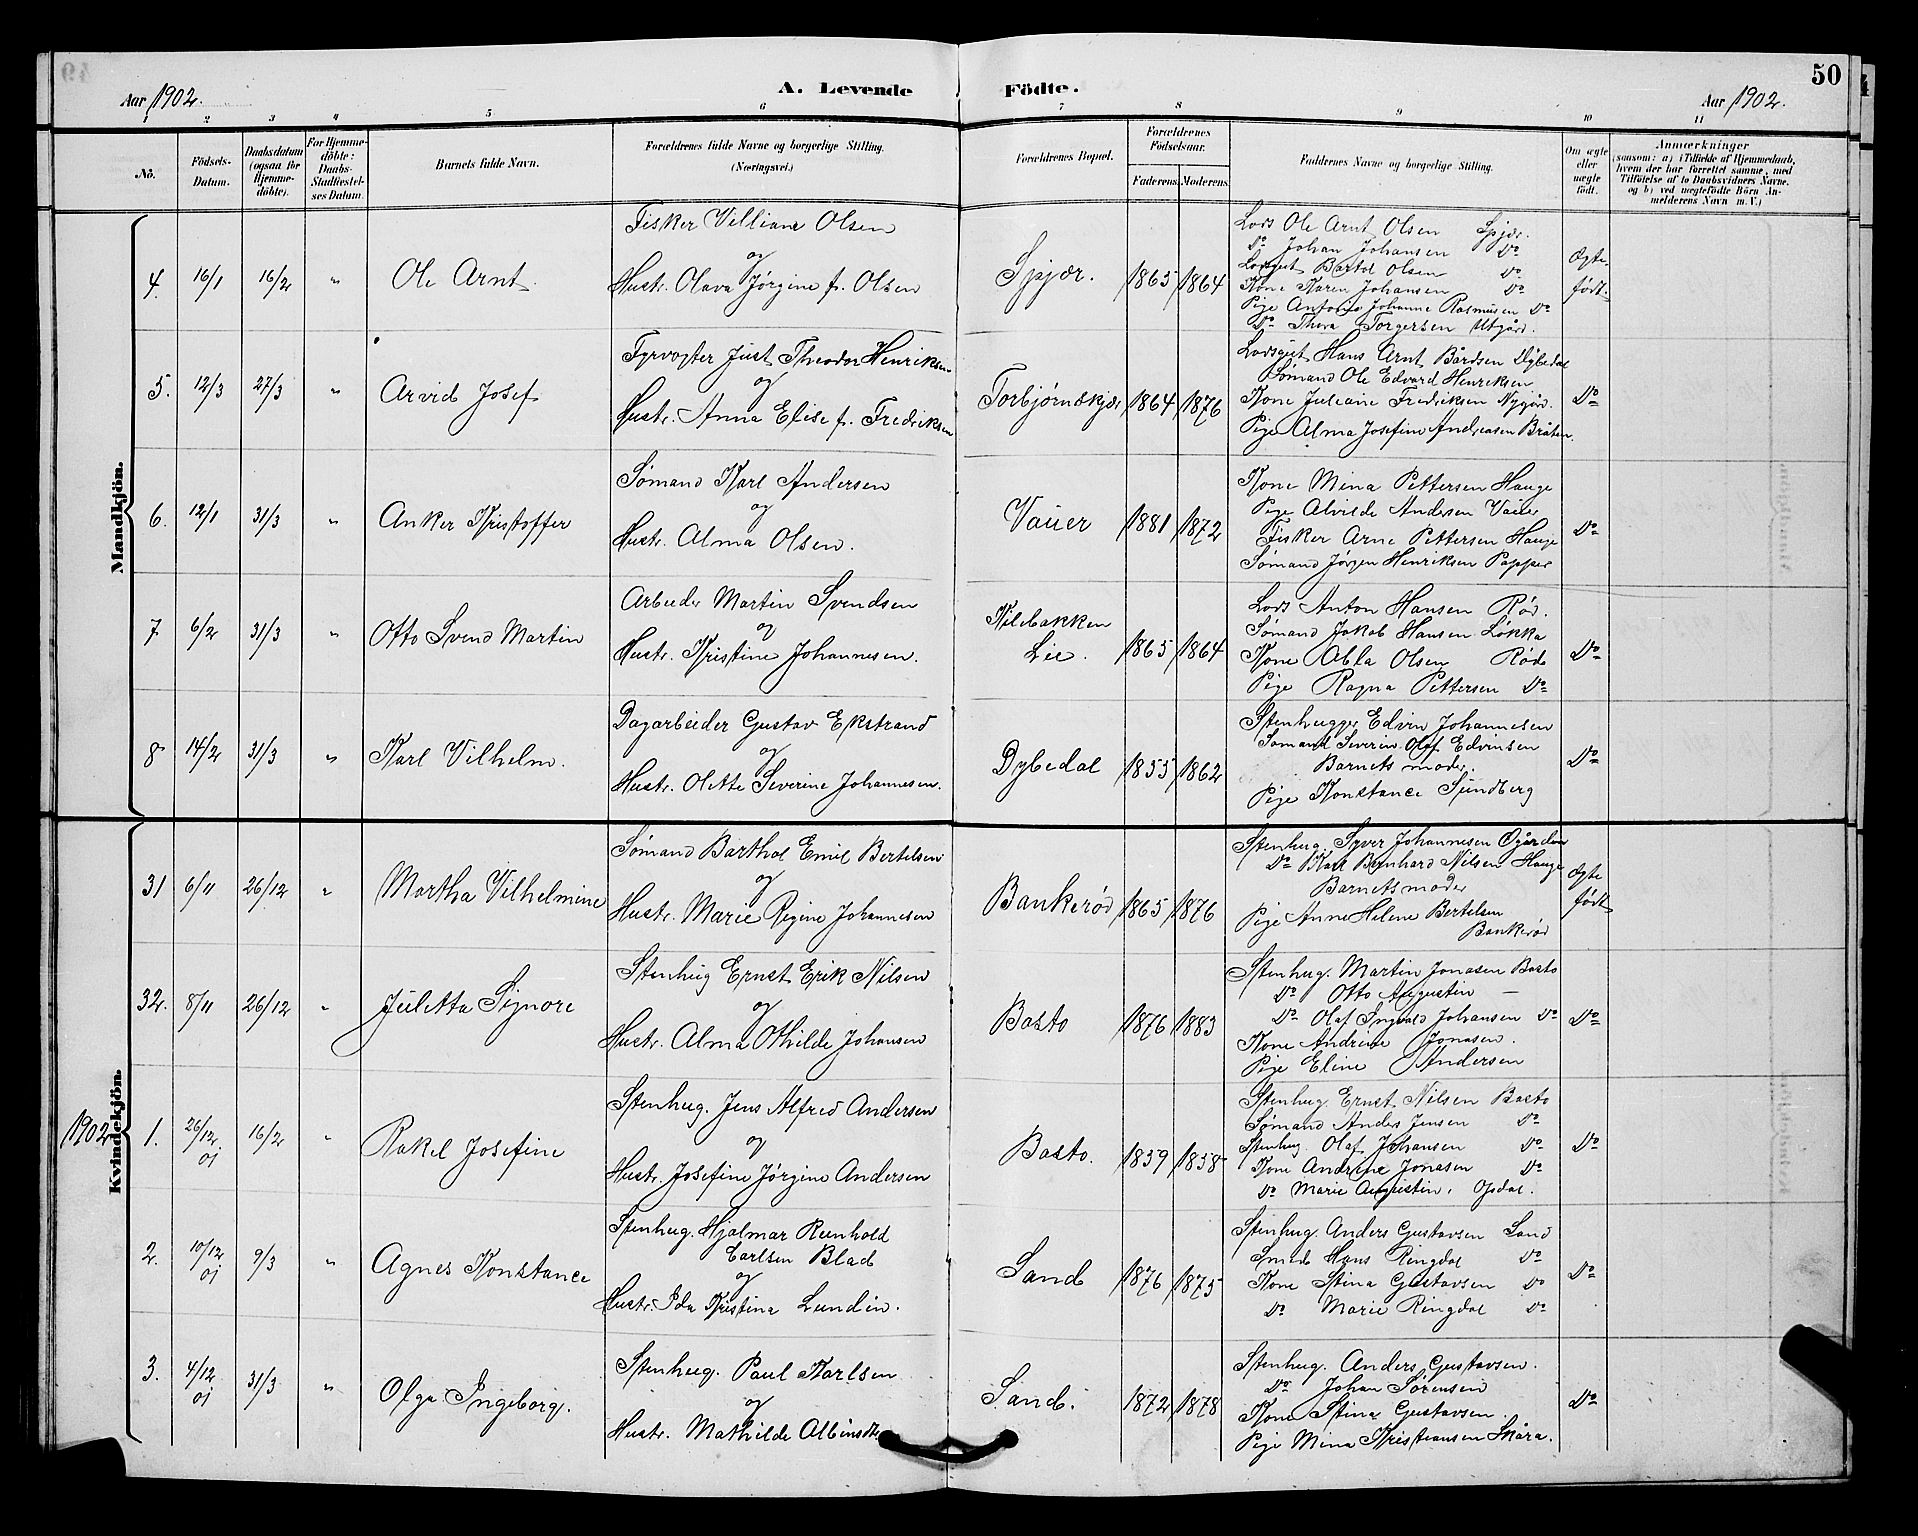 50
Aar 1902.
A. Levende
Födte.
Aar 1902.
1 2 3 4 5 6 7 8 9 10 11
No.
Födsels-Datum.
Daabsdatum (ogsaa for Hjemme-döbte).
For Hjemme-döbte: Daabs-Stadfæstel-ses Datum.
Barnets fulde Navn.
Forældrenes fulde Navne og borgerlige Stilling.
(Næringsvei.)
Forældrenes Bopæl.
Forældrenes Födselsaar.
Faderens. Moderens.
Faddernes Navne og borgerlige Stilling.
Om ægte eller uægte födt.
Anmærkninger
(saasom: a) i Tilfælde af Hjemmedaab,
hvem der har forrettet samme, med
Tilföielse af to Daabsvidners Navne,
og b) ved uægtefödte Börn An-
melderens Navn m. V.)
Mandkjön.
4. 16/1 16/2 " Ole Arnt.
Fisker Villiam Olsen
og
Hustr. Olava Jørgine f. Olsen
Spjær. 1865 1864
Lods Ole Arnt Olsen Spjær.
Do Johan Johansen Do
Lodsgut Bartol Olsen Do
Kone Karen Johansen Do
Pige Antonie Johanne Rasmusen Do
Do Thora Torgersen Utgård.
Ægte-
født.
5. 12/3 27/3 " Arvid Josef
Fyrvogter Just Theodor Henriksen
og
Hustr. Anna Elise f. Fredriksen
Torbjørnskjær 1864 1876
Lodsgut Hans Arnt Bårdsen Dybedal
Sømand Ole Edvard Henriksen
Kone Juliane Fredriksen Nygård.
Pige Alma Josefine Andreasen Bråten.
Do
6. 12/1 31/3 " Anker Kristoffer
Sømand Karl Andersen
og
Hustr. Alma Olsen.
Vauer 1881 1872
Kone Mina Pettersen Hauge
Pige Alvilde Andersen Vauer
Fisker Arne Pettersen Hauge
Sømand Jørgen Henriksen Papper
Do
7. 6/2 31/3 " Otto Svend Martin
Arbeider Martin Svendsen
og
Hustr. Kristine Johannesen.
Kilebakken
Lie. 1865 1864
Lods Anton Hansen Rød.
Sømand Jakob Hansen Løkka
Kone Abla Olsen Røds
Pige Ragna Pettersen Do
Do
8 14/2 31/3 " Karl Vilhelm.
Dagarbeider Gustav Ekstrand
og
Hustr. Olette Severine Johannesen.
Dybedal 1855 1862
Stenhugger Edvin Johannesen
Sømand Severin Olaf Edvinsen
Barnets moder.
Pige Konstance Sundberg
Do
Kvindekjön.
31 6/11 26/12 " Martha Vilhelmine
Sømand Barthol Emil Bertelsen
og
Hustr. Marie Regine Johannesen
Bankerød 1865 1876
Stenhug. Syver Johannesen Øgården
Do Karl Bernhard Nilsen Hauge
Barnets moder
Pige Anne Helene Bertelsen
Bankerød
Ægte
født
32. 8/11 26/12 " Juletta Signore
Stenhug Ernst Erik Nilsen
og
Hustr. Alma Othilde Johansen
Basto 1876 1883
Stenhug. Martin Jonasen Basto
Do Otto Augustin —
Do Olaf Ingvald Johansen Do
Kone Andrine Jonasen.
Pige Eline Andersen
Do
1902
1. 26/12 01 16/2 " Rakel Josefine
Stenhug. Jens Alfred Andersen
og
Hustr. Josefine Jørgine Andersen
Basto. 1859 1858
Stenhug. Ernst Nilsen Basto
Sømand Anders Jensen Do
Stenhug Olaf Johansen Do
Kone Andrine Jonasen Do
Do Marie Augustin, Opdal.
Do
2. 10/12 01 9/3 " Agnes Konstance
Stenhug. Hjalmar Reinhold
Carlsen Blad
og
Hustr. Ida Kristina Lundin.
Sand 1876 1875
Stenhug. Anders Gustavsen Sand
Smed Hans Ringdal Do
Kone Stina Gustavsen Do
Do Marie Ringdal Do
Do
3. 4/12 01 31/3 " Olga Ingeborg.
Stenhug. Paul Karlsen
og
Hustr. Mathilde
Sand. 1872 1878
Stenhug. Anders Gustavsen.
Do Johan Sørensen
Kone Stina Gustavsen.
Pige Mina Kristiansen Skåra.
Do